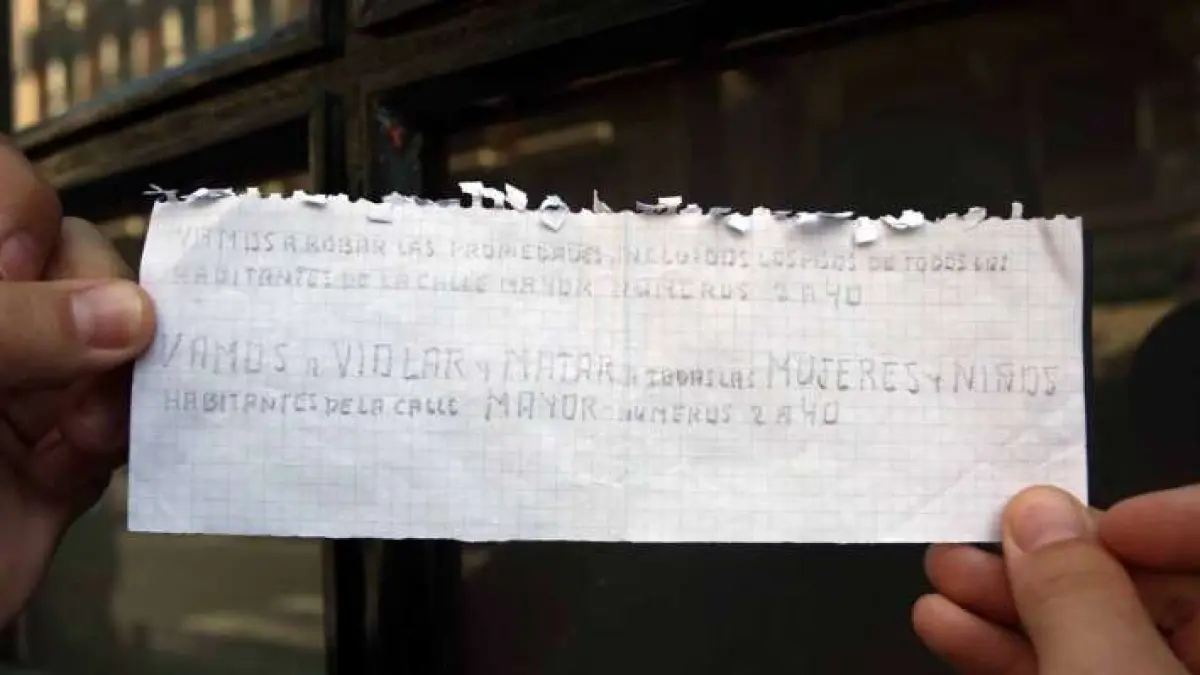 VAMOS A ROBAR LAS PROPIEDADES, INCLUIDOS LOS PISOS DE TODOS LOS
HABITANTES DE LA CALLE MAYOR NUMEROS 2 A 40
VAMOS A VIOLAR Y MATAR A TODAS LAS MUJERES Y NIÑOS
HABITANTES DE LA CALLE MAYOR NUMEROS 2 A 40